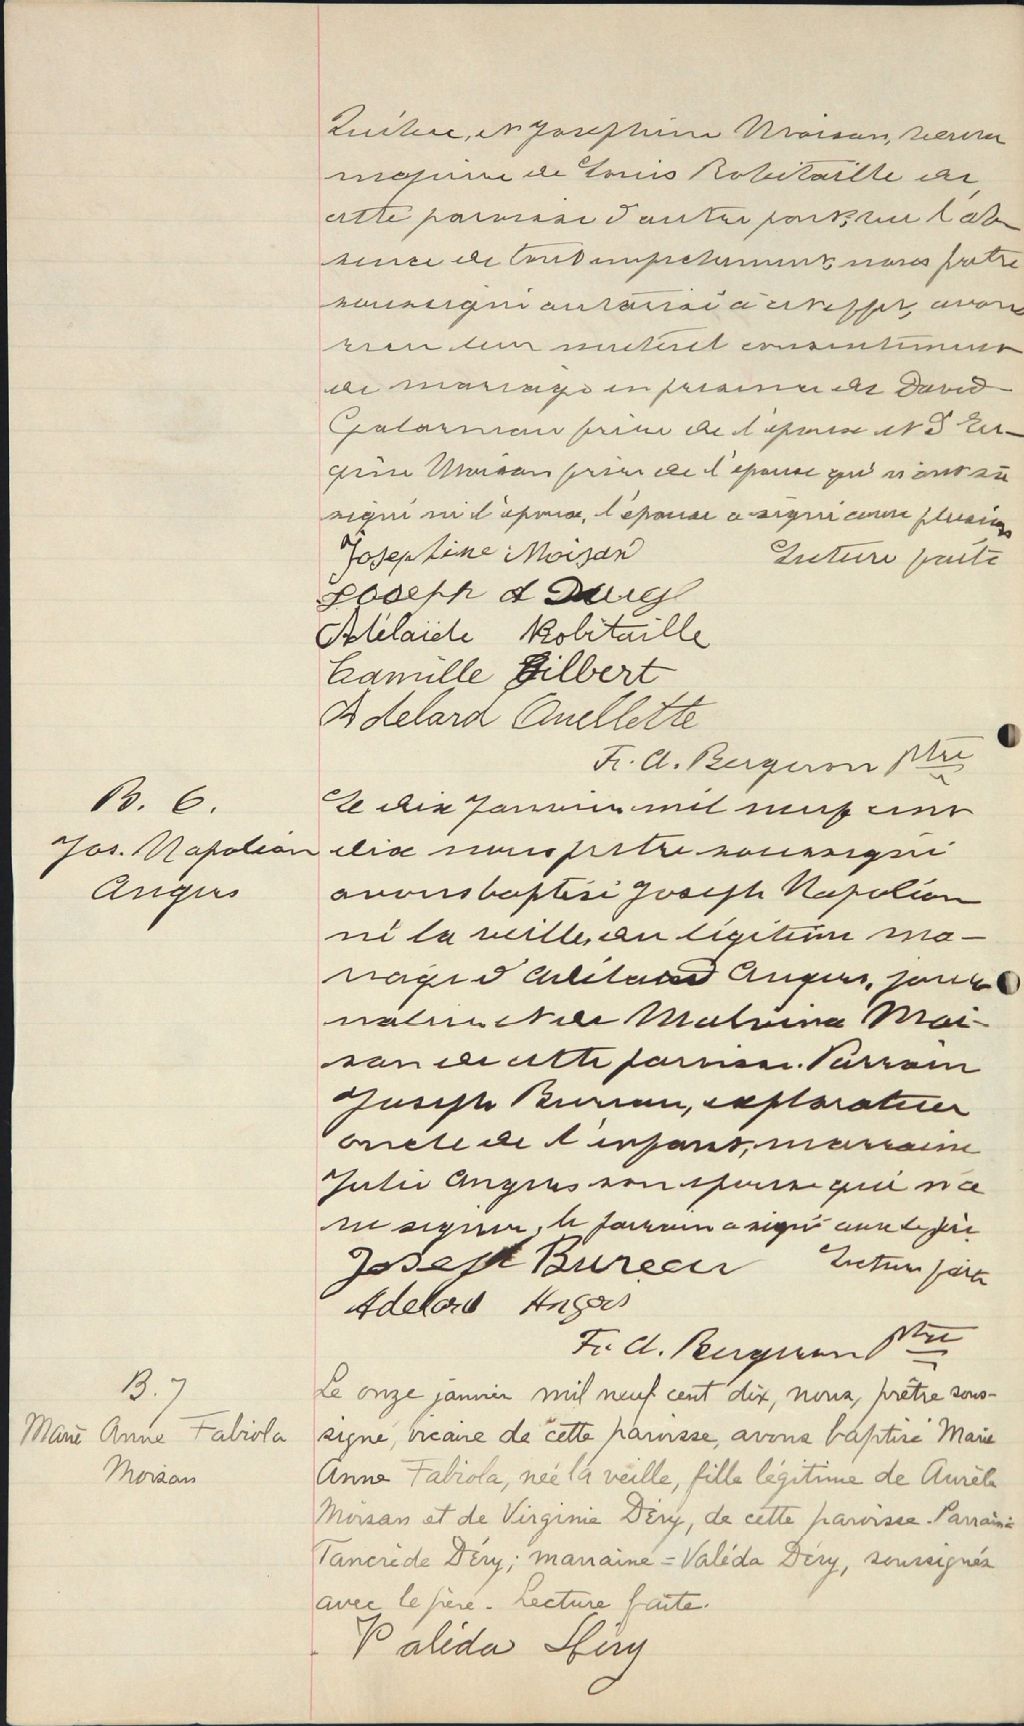 Québec, et Josephine Moisan, veuve
majeure de Louis Robitaille de
cette paroisse d'autre part; vu l'ab-
sence de tout empêchement, nous prêtre
soussigné autorisé à cet effet, avons
reçu leur mutuel consentement
de mariage en présence de David
Galarneau frère de l'époux et d'Eu-
gène Moisan frère de l'épouse qui n'ont su
signer ni l'époux, l'épouse a signé avec plusieurs
Josephine Moisan Lecture faite
Joseph
Adélaïde Robitaille
Camille Gilbert
Adelard Ouellette
Fr. A. Bergeron Ptre
B. 6.
Jos. Napoléon
Angers
Le dix Janvier mil neuf cent
dix nous prêtre soussigné
avons baptisé Joseph Napoléon
né la veille, du légitime ma-
riage d'Adélard Angers, jour-
nalier et de Malvina Moi-
san de cette paroisse. Parrain
Joseph Bureau, explorateur
oncle de l'enfant, marraine
Julie Angers son épouse qui n'a
su signer, le parrain a signé avec le père
Joseph Bureau Lecture faite
Adelard Angers
Fr. A. Bergeron Ptre
B. 7
Marie Anne Fabiola
Moisan
Le onze janvier mil neuf cent dix, nous, prêtre sous-
signé, vicaire de cette paroisse, avons baptisé Marie
Anne Fabiola, née la veille, fille légitime de Aurèle
Moisan et de Virginie Déry, de cette paroisse. Parrain =
Tancrède Déry; marraine = Valéda Déry, soussignés
avec le père. Lecture faite.
Valéda Déry